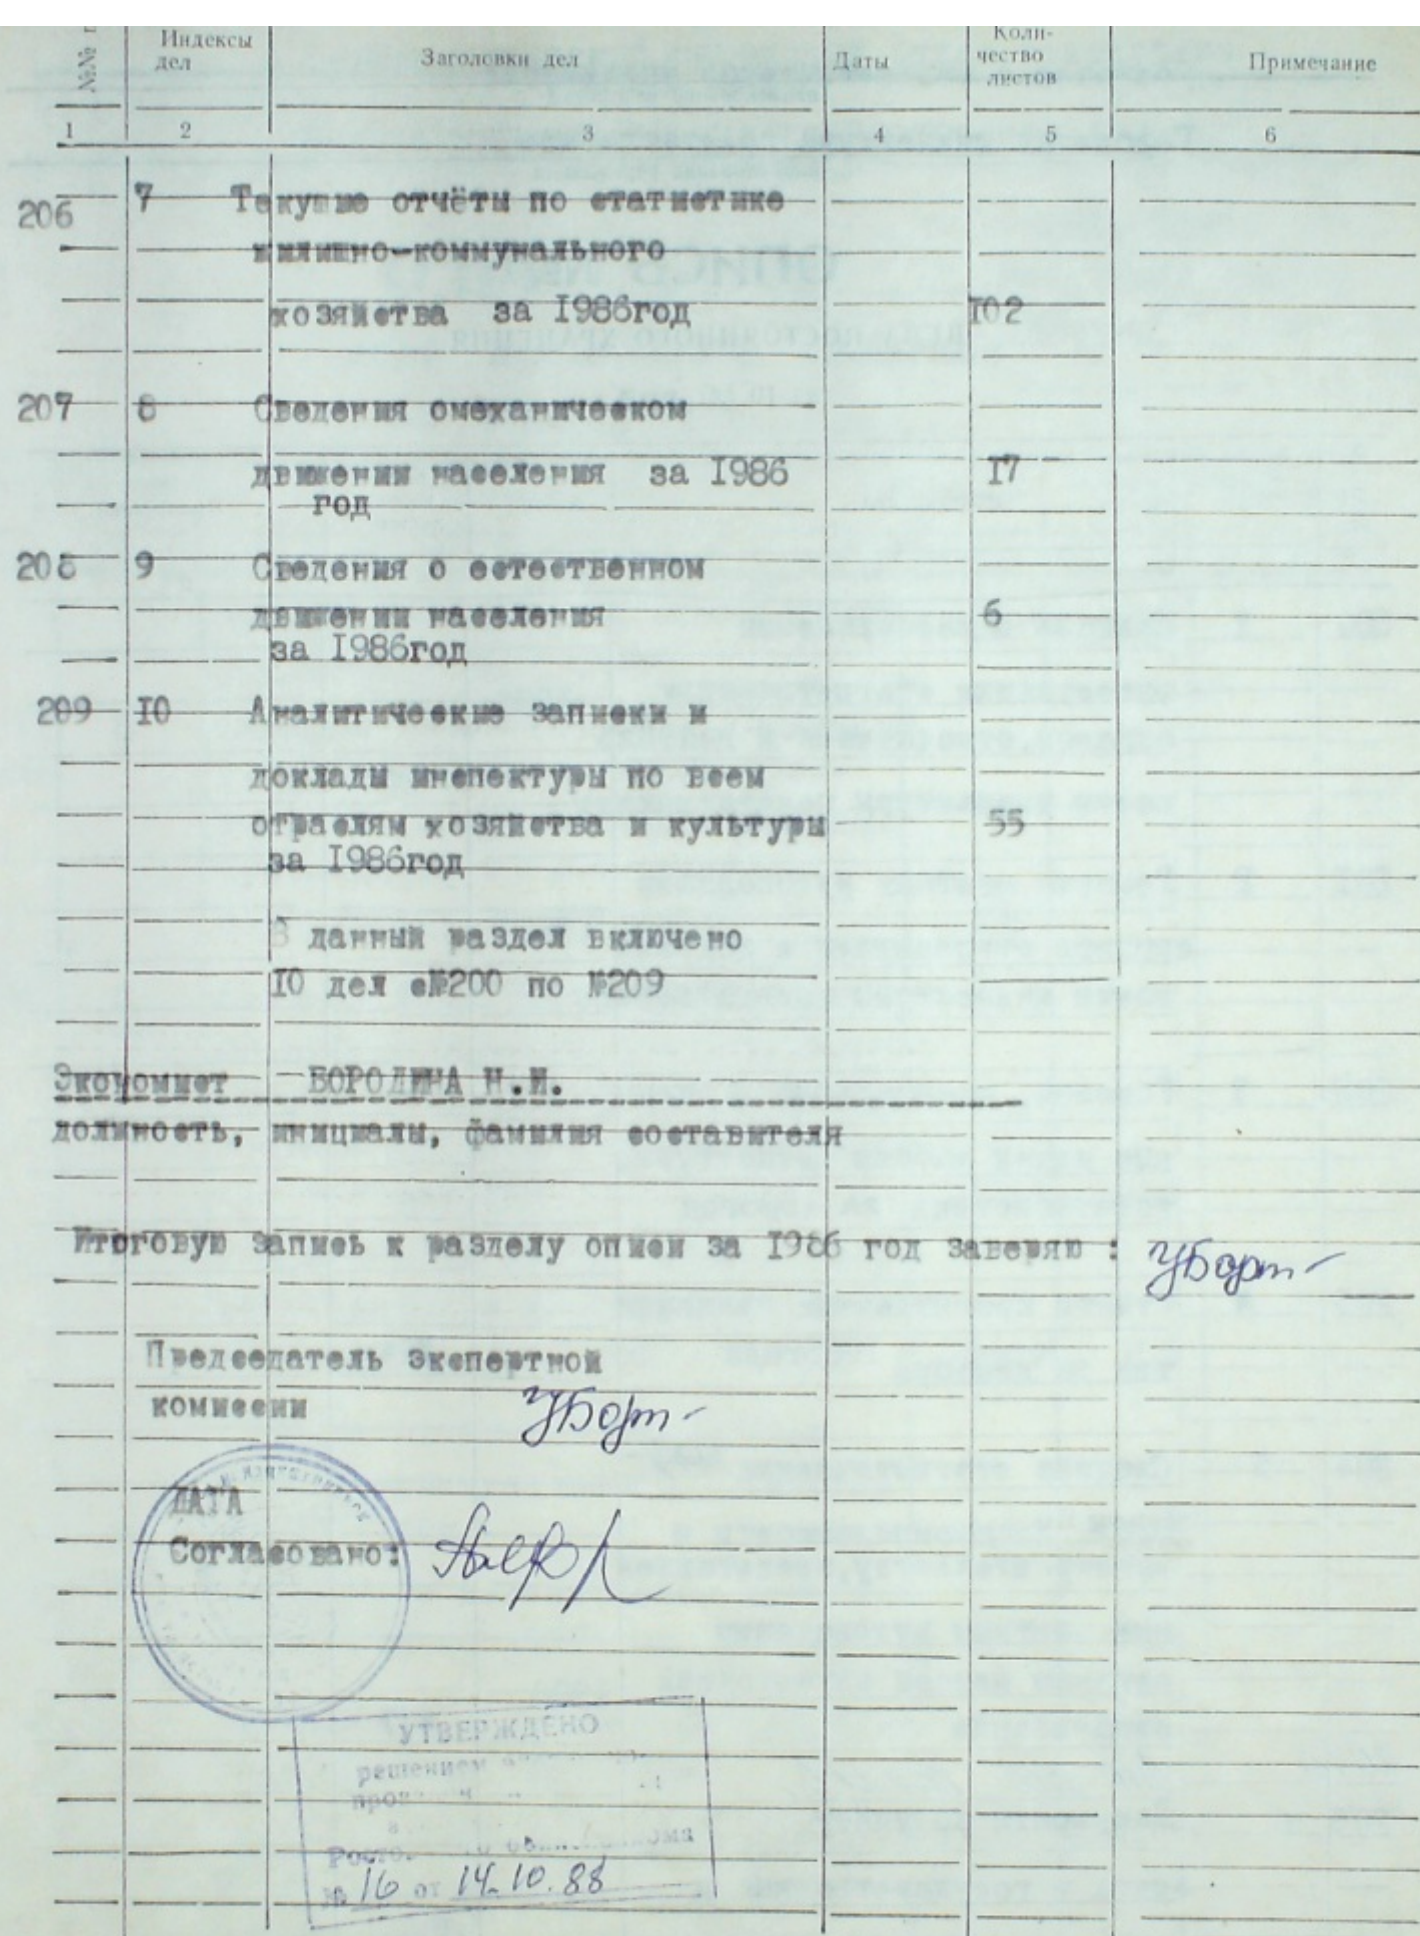 №№
Индексы дел
Заголовки дел
Даты
Коли-
чество
листов
Примечание
1 2 3 4 5 6
206 7 Текущие отчёты по статистике
жилищно-коммунального
хозяйства за I986год I02
207 8 Сведения омеханическом
движении населения за I986 I7
год
208 9 Сведения о естественном
движении населения 6
за I986год
209 I0 Аналитические записки и
доклады инспектуры по всем
отраслям хозяйства и культуры 55
за I986год
В данный раздел включено
I0 дел с№200 по №209
Экономист БОРОДИНА Н.И.
должность, инициалы, фамилия составителя
Итоговую запись к разделу описи за I986 год заверяю :
Председатель экспертной
комиссии
ДАТА
Согласовано:
УТВЕРЖДЕНО
решением
№ 16 от 14.10.88